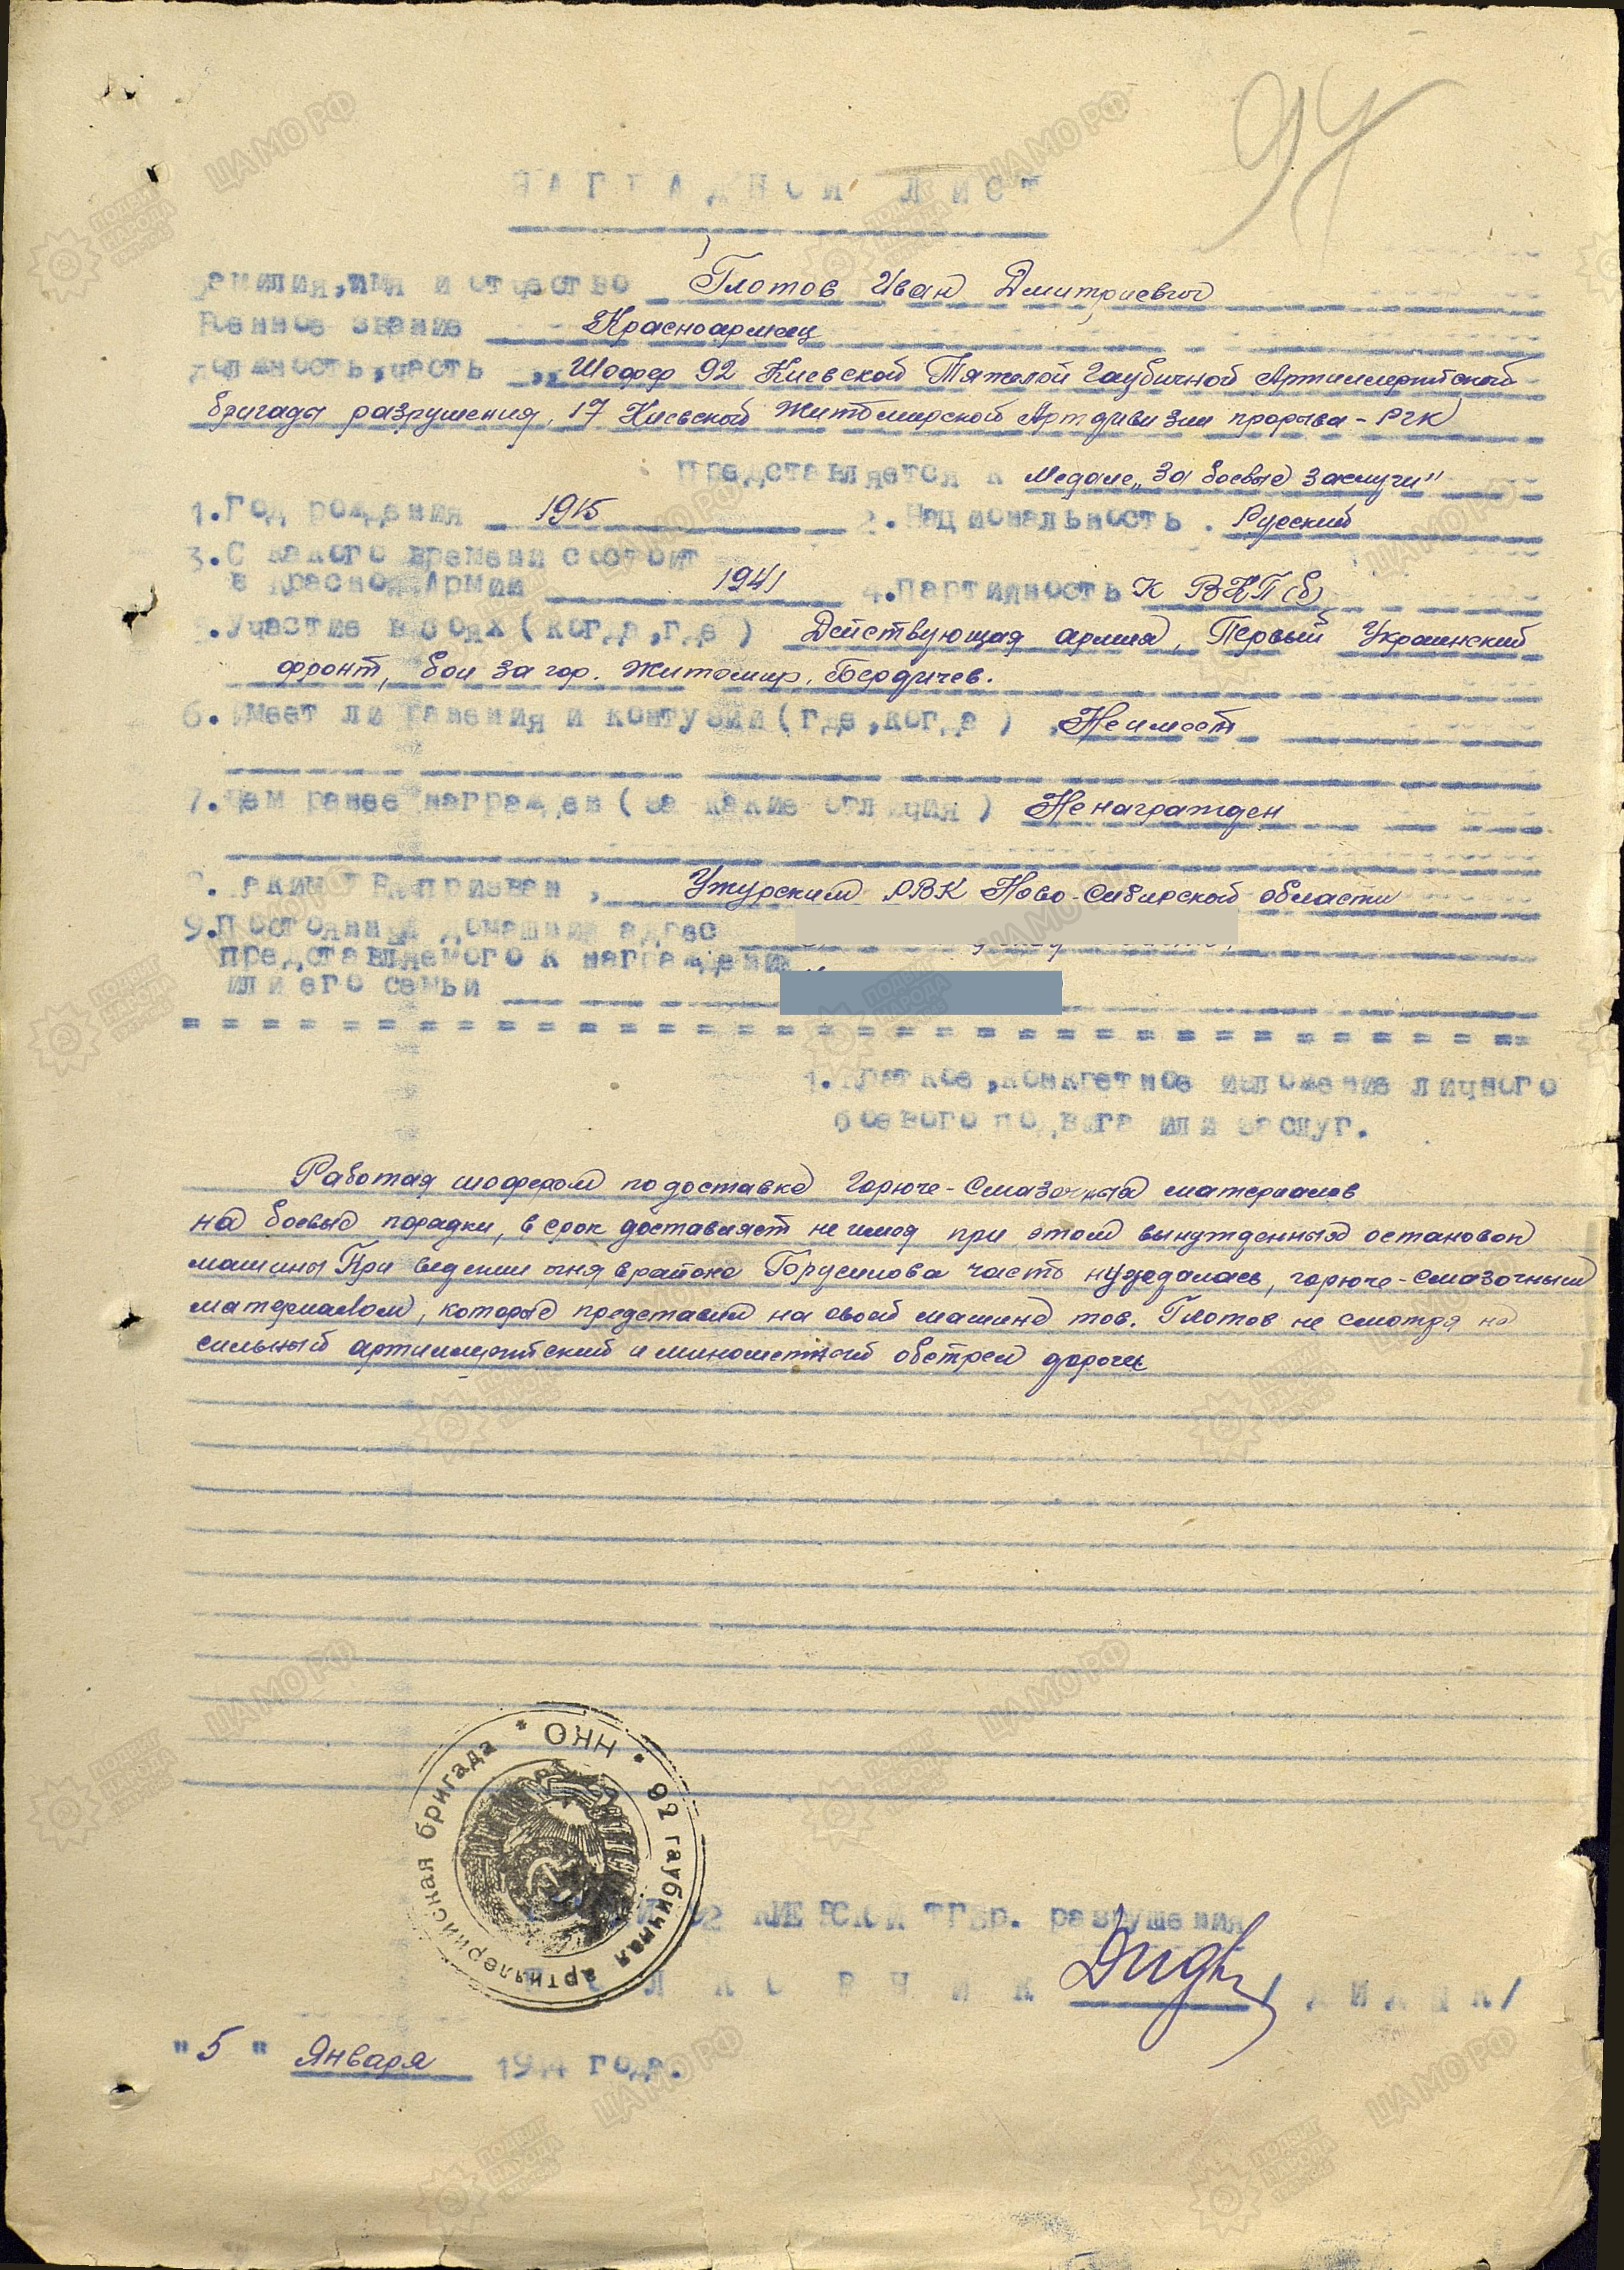 97
НАГРАДНОЙ ЛИСТ
Фамилия, имя и отчество Глотов Иван Дмитриевич
Военное звание Красноармеец
Должность, часть Шофер 92 Киевской Тяжелой Гаубичной Артиллерийской
бригады разрушения, 17 Киевской Житомирской Артдивизии прорыва - РГК
Представляется к Медале „За боевые заслуги"
1. Год рождения 1915 2. Национальность. Русский
3. С какого времени состоит
в Красной Армии 1941 4. Партийность К ВКП(б)
5. Участие в боях (когда, где) Действующая армия, Первый Украинский
фронт, бои за гор. Житомир, Бердичев.
6. Имеет ли ранения и контузии (где, когда) Не имеет
7. Чем ранее награжден (за какие отличия) Не награжден
8. Каким РВК призван, Ужурским РВК Ново-Сибирской области
9. Постоянный домашний адрес
представляемого к награждению
или его семьи
1. Краткое, конкретное изложение личного
боевого подвига или заслуг.
Работая шофером по доставке Горюче-Смазочных материалов
на боевые порядки, в срок доставляет не имея при этом вынужденных остановок
машины При ведении огня в районе Горусилова часть нуждалась, горюче-смазочным
материалом, которые представил на своей машине тов. Глотов не смотря на
сильный артиллерийский и минометный обстрел дороги
НКО * 92 гаубичная артиллерийская бригада *
92 КИЕВСКОЙ ТГБр. разрушения
ПОЛКОВНИК /ДИДЫК/
"5" Января 194 года.
ЦАМО РФ
ПОДВИГ НАРОДА